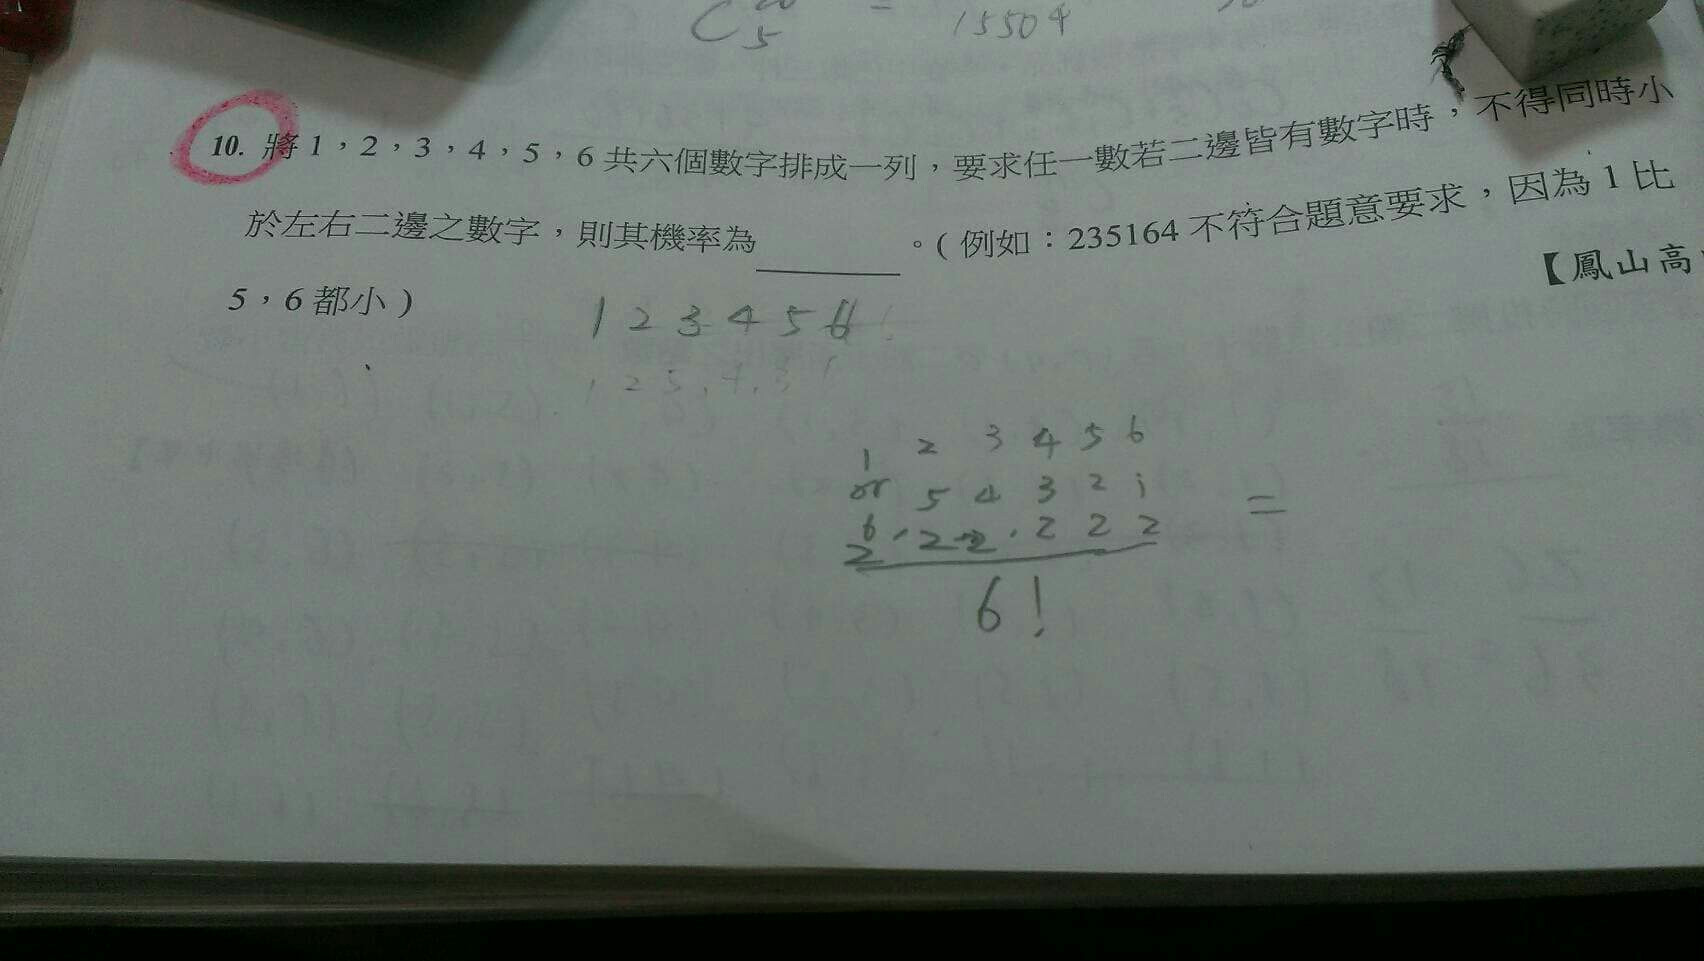 C 5 = 15504
10. 將1，2，3，4，5，6共六個數字排成一列，要求任一數若二邊皆有數字時，不得同時小
於左右二邊之數字，則其機率為 。(例如：235164不符合題意要求，因為1比
【鳳山高
5，6都小)
1 2 3 4 5 6
1 2 3 4 5 6
or 5 4 3 2 1
6
2 · 2 · 2 · 2 2 2 =
6!